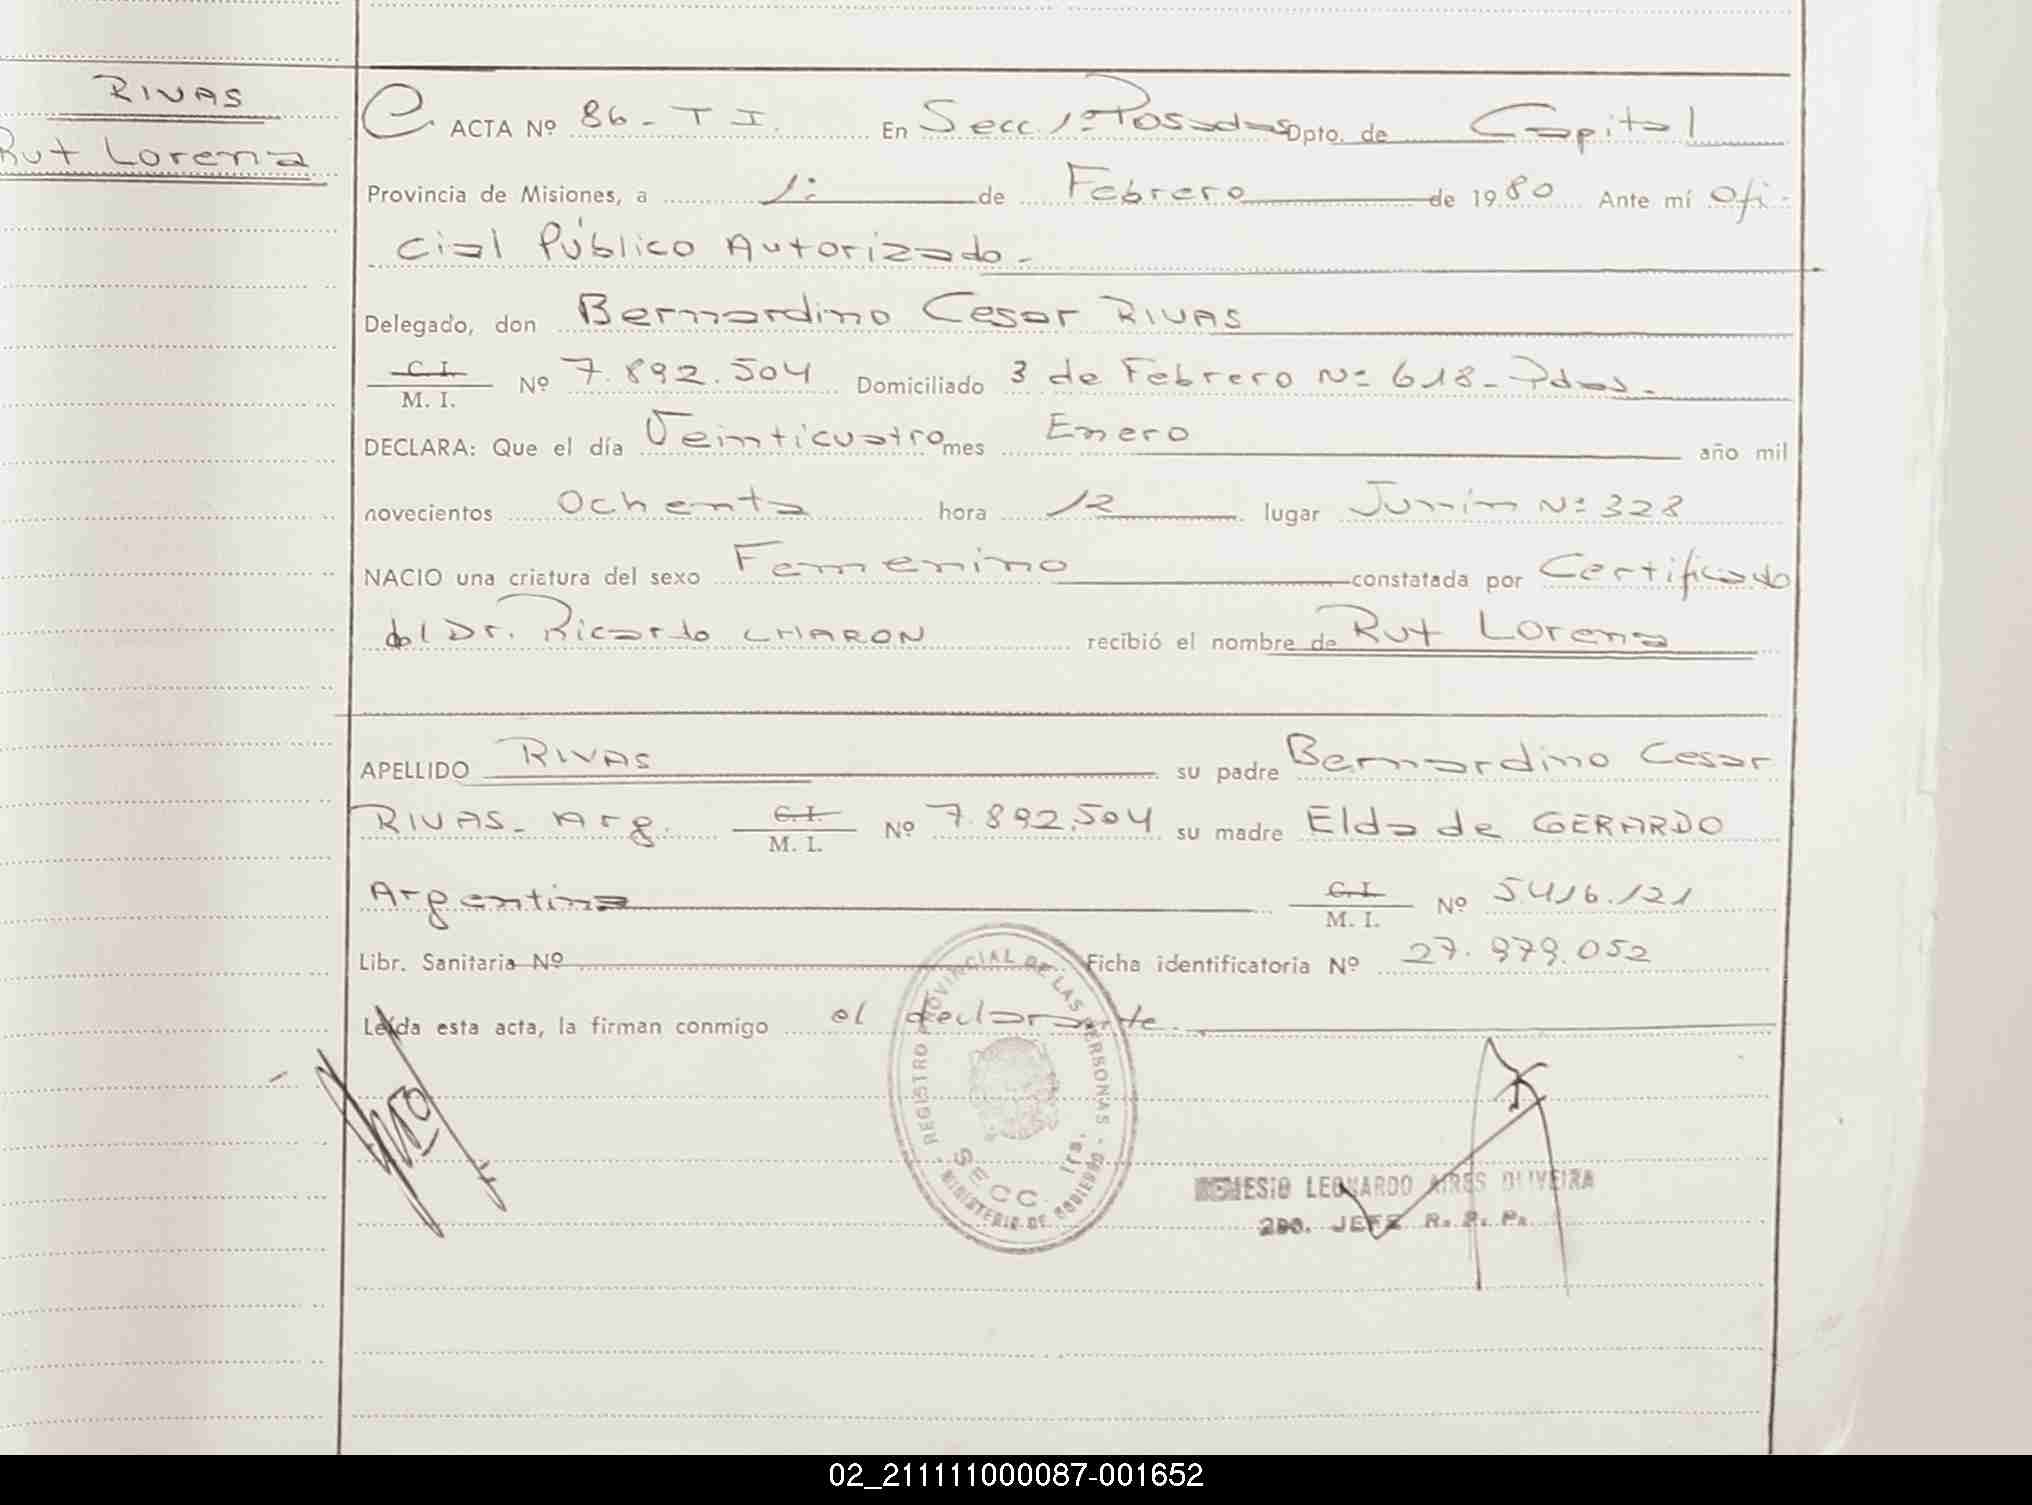 RIVAS
Rut Lorena
ACTA Nº 86 - T I. En Secc. 1º Posadas Dpto. de Capital
Provincia de Misiones, a 1º de Febrero de 1980 Ante mí Ofi-
cial Público Autorizado.-
Delegado, don Bernardino Cesar RIVAS
C. I.
M. I. Nº 7.892.504 Domiciliado 3 de Febrero Nº 618 - Pdas.
DECLARA: Que el día Veinticuatro mes Enero año mil
novecientos Ochenta hora 12 lugar Junín Nº 328
NACIO una criatura del sexo Femenino constatada por Certificado
del Dr. Ricardo CHARON recibió el nombre de Rut Lorena
APELLIDO RIVAS su padre Bernardino Cesar
RIVAS - Arg. C. I.
M. I. Nº 7.892.504 su madre Elda de GERARDO
Argentina C. I.
M. I. Nº 5.416.121
Libr. Sanitaria Nº Ficha identificatoria Nº 27.979.052
Leída esta acta, la firman conmigo el declarante.
REGISTRO PROVINCIAL DE LAS PERSONAS - MINISTERIO DE GOBIERNO
SECC. 1ra.
LEONARDO AIRES OLIVEIRA
2DO. JEFE R. P. P.
02_211111000087-001652